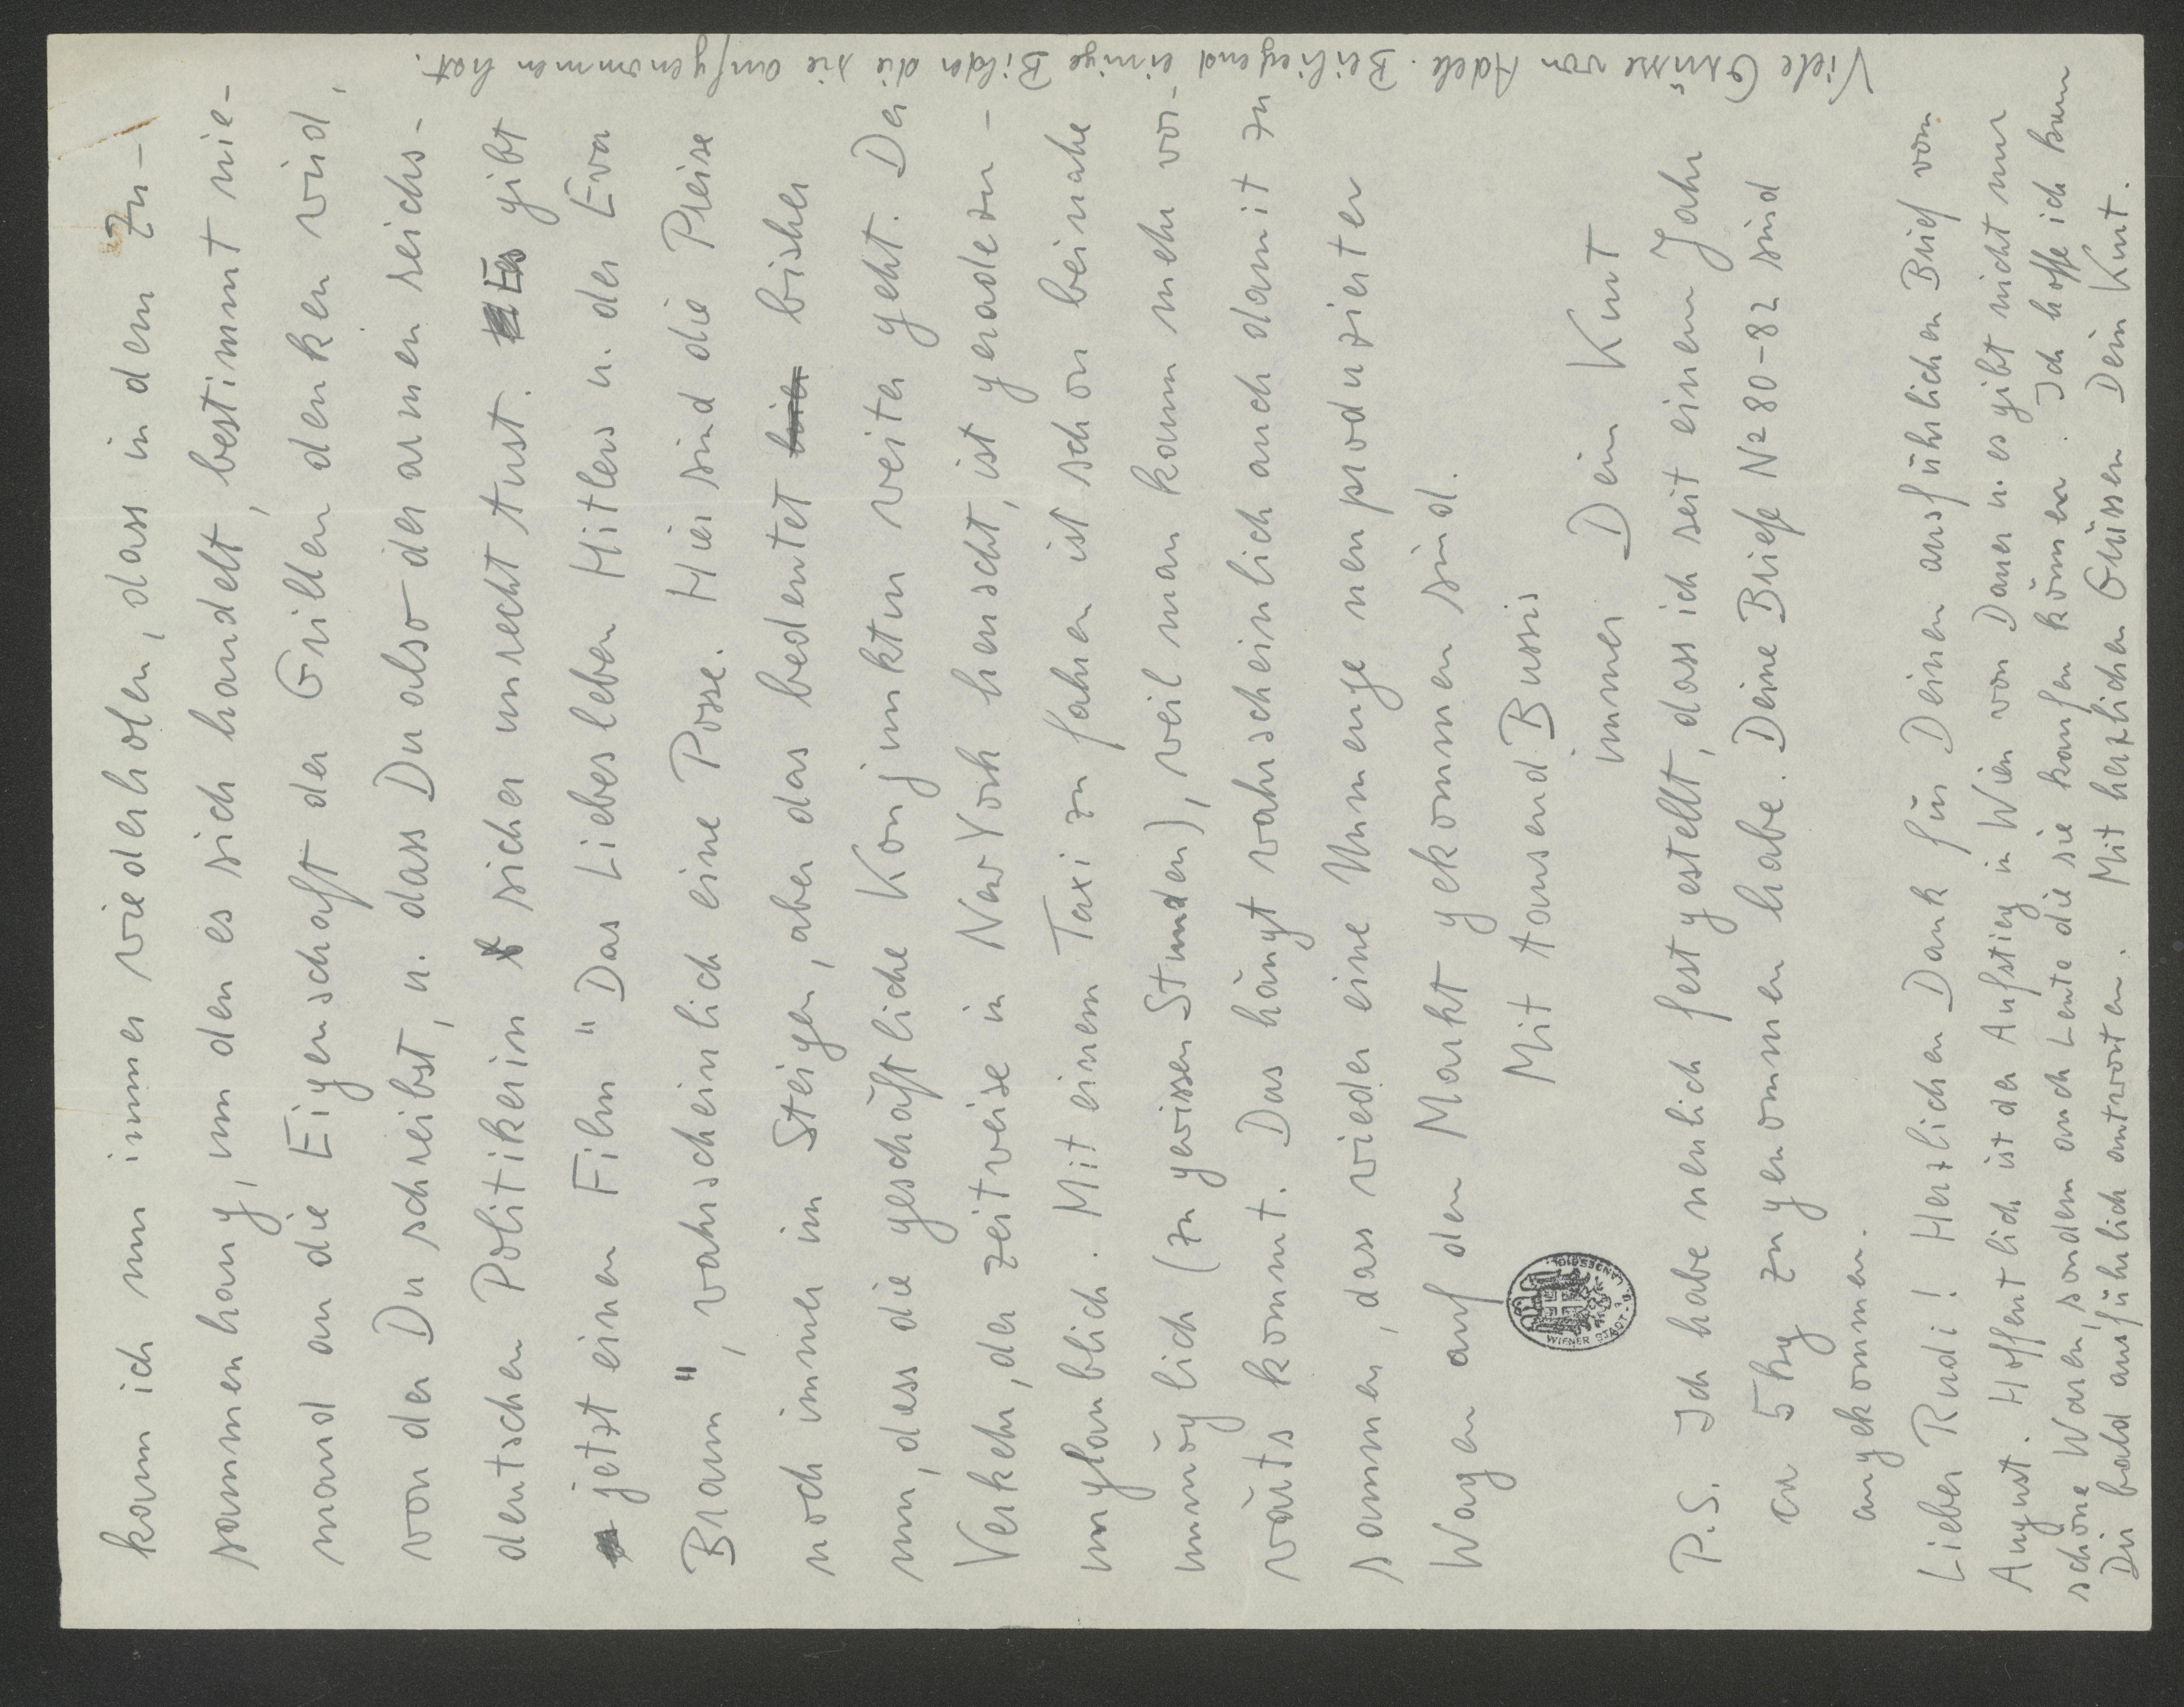 kann ich nur immer wiederholen, dass in dem Zu-
sammenhang, um den es sich handelt, bestimmt nie-
mand an die Eigenschaft der Grillen denken wird,
von der Du schreibst, u. dass Du also der armen reichs-
deutschen Politikerin sicher unrecht tust. Es gibt
jetzt einen Film "Das Liebesleben Hitlers u. der Eva
Braun", wahrscheinlich eine Posse. Hier sind die Preise
noch immer im Steigen, aber das bedeutet hier bisher
nur, dass die geschäftliche Konjunktur weiter geht. Der
Verkehr, der zeitweise in New York herrscht, ist geradezu
unglaublich. Mit einem Taxi zu fahren ist schon beinahe
unmöglich (zu gewissen Stunden), weil man kaum mehr vor-
wärts kommt. Das hängt wahrscheinlich auch damit zu
sammen, dass wieder eine Unmenge neu produzierter
Wagen auf den Markt gekommen sind.
Mit tausend Bussis
immer Dein Kurt
P.S. Ich habe neulich festgestellt, dass ich seit einem Jahr
ca 5 kg zugenommen habe. Deine Briefe Nº 80-82 sind
angekommen.
Lieber Rudi! Herzlichen Dank für Deinen ausführlichen Brief vom
August. Hoffentlich ist der Aufstieg in Wien von Dauer u. es gibt nicht nur
schöne Waren, sondern auch Leute die sie kaufen können. Ich hoffe ich kann
Dir bald ausführlich antworten. Mit herzlichen Grüssen Dein Kurt.
Viele Grüsse von Adele. Beiliegend einige Bilder die sie aufgenommen hat.
WIENER STADT- U. LANDESBIBL.